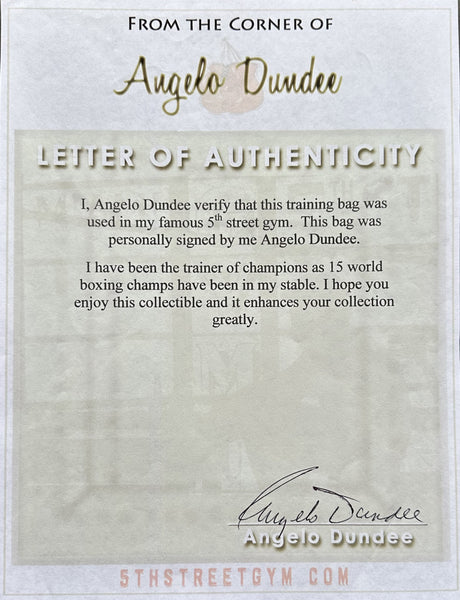 FROM THE CORNER OF
Angelo Dundee
LETTER OF AUTHENTICITY
I, Angelo Dundee verify that this training bag was
used in my famous 5th street gym. This bag was
personally signed by me Angelo Dundee.
I have been the trainer of champions as 15 world
boxing champs have been in my stable. I hope you
enjoy this collectible and it enhances your collection
greatly.
Angelo Dundee
Angelo Dundee
5THSTREETGYM.COM